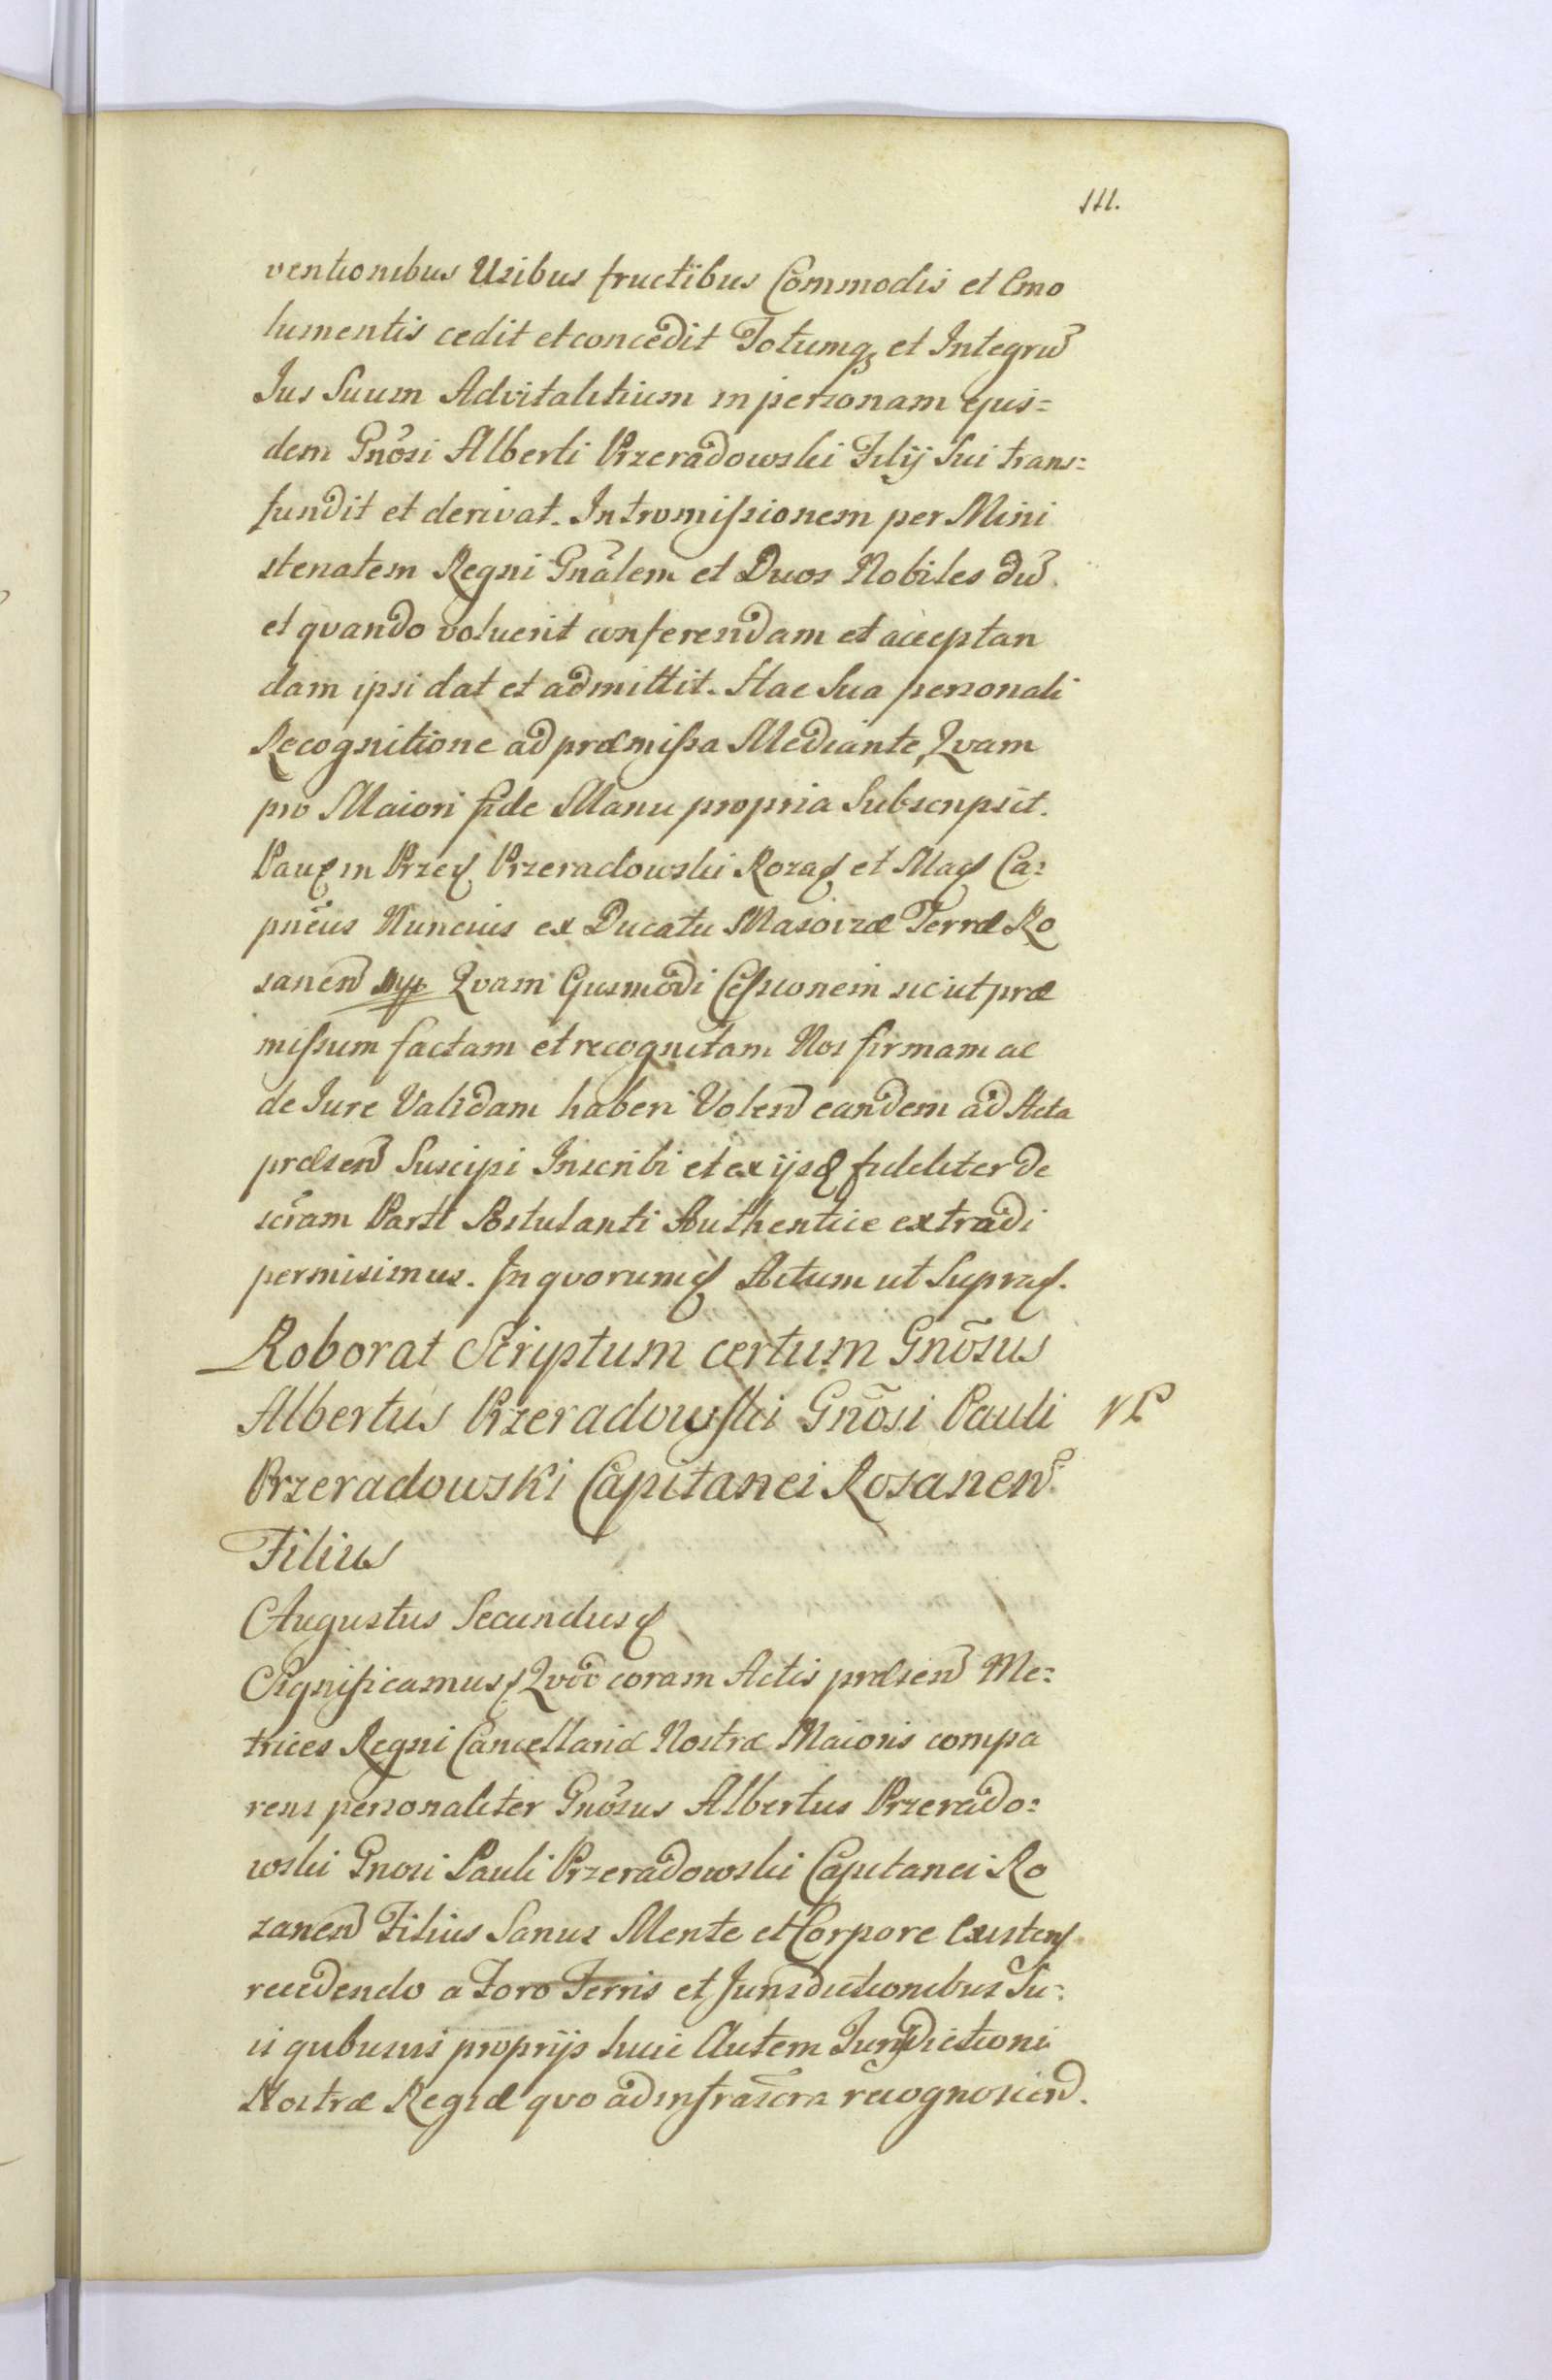 111.
ventionibus Usibus fructibus Commodis et Emo
lumentis cedit et concedit Totumq3 et Integrũ
Jus Suum Advitalitium in personam ejus=
dem Gnõsi Alberti Przeradowski Filij Sui trans=
fundit et derivat. Intromissionem per Mini
sterialem Regni Gnãlem et Duos Nobiles dũ
et qvando voluerit conferendam et acceptan
dam ipsi dat et admittit. Hac Sua personali
Recognitione ad præmissa Mediante, Qvam
pro Maiori fide Manu propria Subscripsit.
Przeradowski Rozaȩ et Maȩ Ca=
pnẽus Nuncius ex Ducatu Masoviæ Terræ Ro
sanen̄ Qvam Ejusmodi Cessionem sicut præ
missum factam et recognitam Nos firmam ac
de Jure Validam haberi Volen̄ eandem ad Acta
præsen̄ Suscipi Inscribi et ex ijsd fideliter de
scr̃am Parti Postulanti Authentice extradi
permisimus. In qvorum Actum ut Supra.
Roborat Scriptum certum Gnõsus
Albertus Przeradowski Gnõsi Pauli
Przeradowski Capitanei Rosanen̄
Filius
Augustus Secundus
Significamus Qvod coram Actis præsen̄ Me=
trices Regni Cancellariæ Nostræ Maioris compa
rens personaliter Gnõsus Albertus Przerado=
wski Gnosi Pauli Przeradowski Capitanei Ro
zanen̄ Filius Sanus Mente et Corpore Existens
recedendo a Foro Terris et Jurisdictionibus Su=
is qvibusvis proprijs huic Autem Jurisdictioni
Nostræ Regiæ quo ad infrascr̃a recognoscen̄.